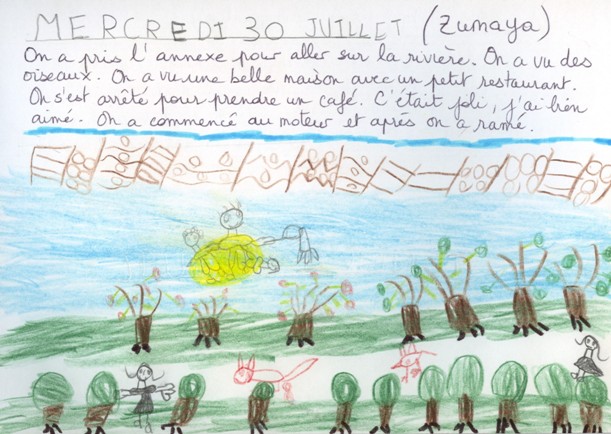 MERCREDI 30 JUILLET (Zumaya)
On a pris l'annexe pour aller sur la rivière. On a vu des
oiseaux. On a vu une belle maison avec un petit restaurant.
On s'est arrêté pour prendre un café. C'était joli, j'ai bien
aimé. On a commencé au moteur et après on a ramé.